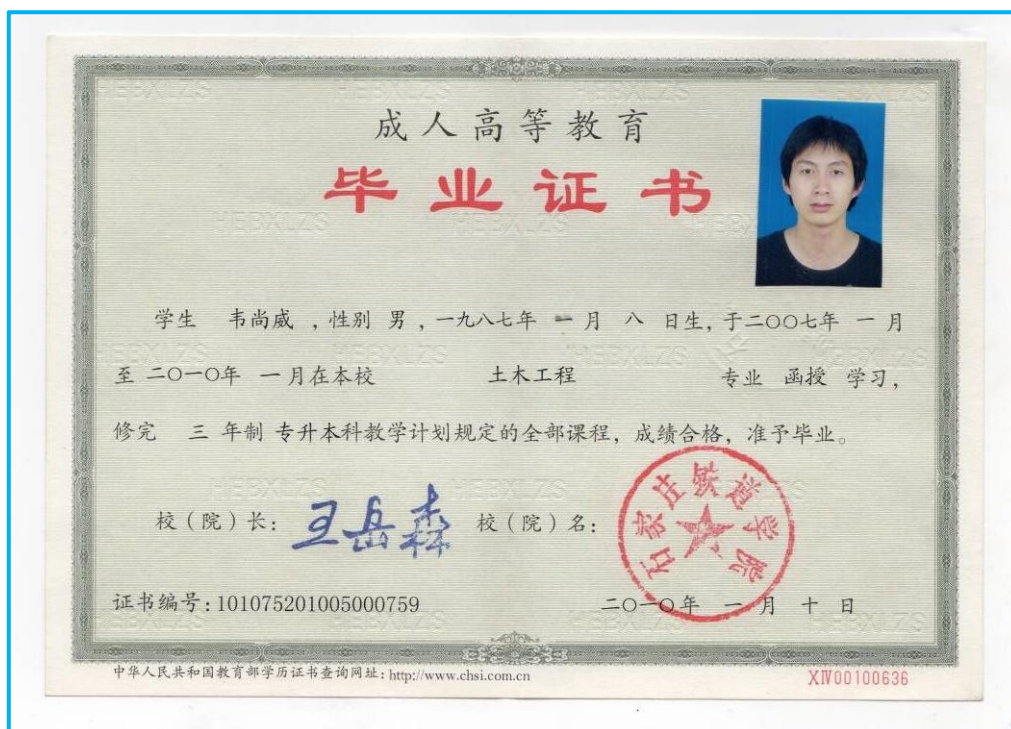 成人高等教育
毕业证书
学生 韦尚威 ,性别 男 ,一九八七年 一 月 八 日生,于二〇〇七年 一 月
至 二〇一〇年 一月在本校 土木工程 专业 函授 学习,
修完 三 年制 专升本科教学计划规定的全部课程,成绩合格,准予毕业。
校(院)长: 王岳森 校(院)名: 石家庄铁道学院
证书编号:101075201005000759 二〇一〇年 一 月 十 日
中华人民共和国教育部学历证书查询网址:http://www.chsi.com.cn XIV00100636
HEBXLZS